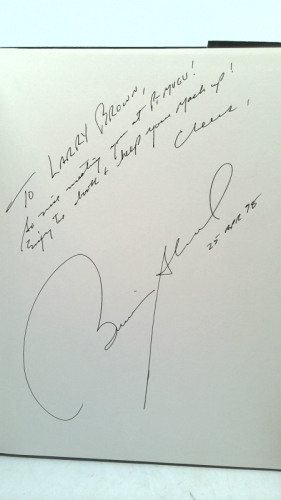 TO LARRY BROWN,
So nice meeting you at Pt. MUGU!
Enjoy the book & keep your Mach up!
Cheers,
25 APR 95